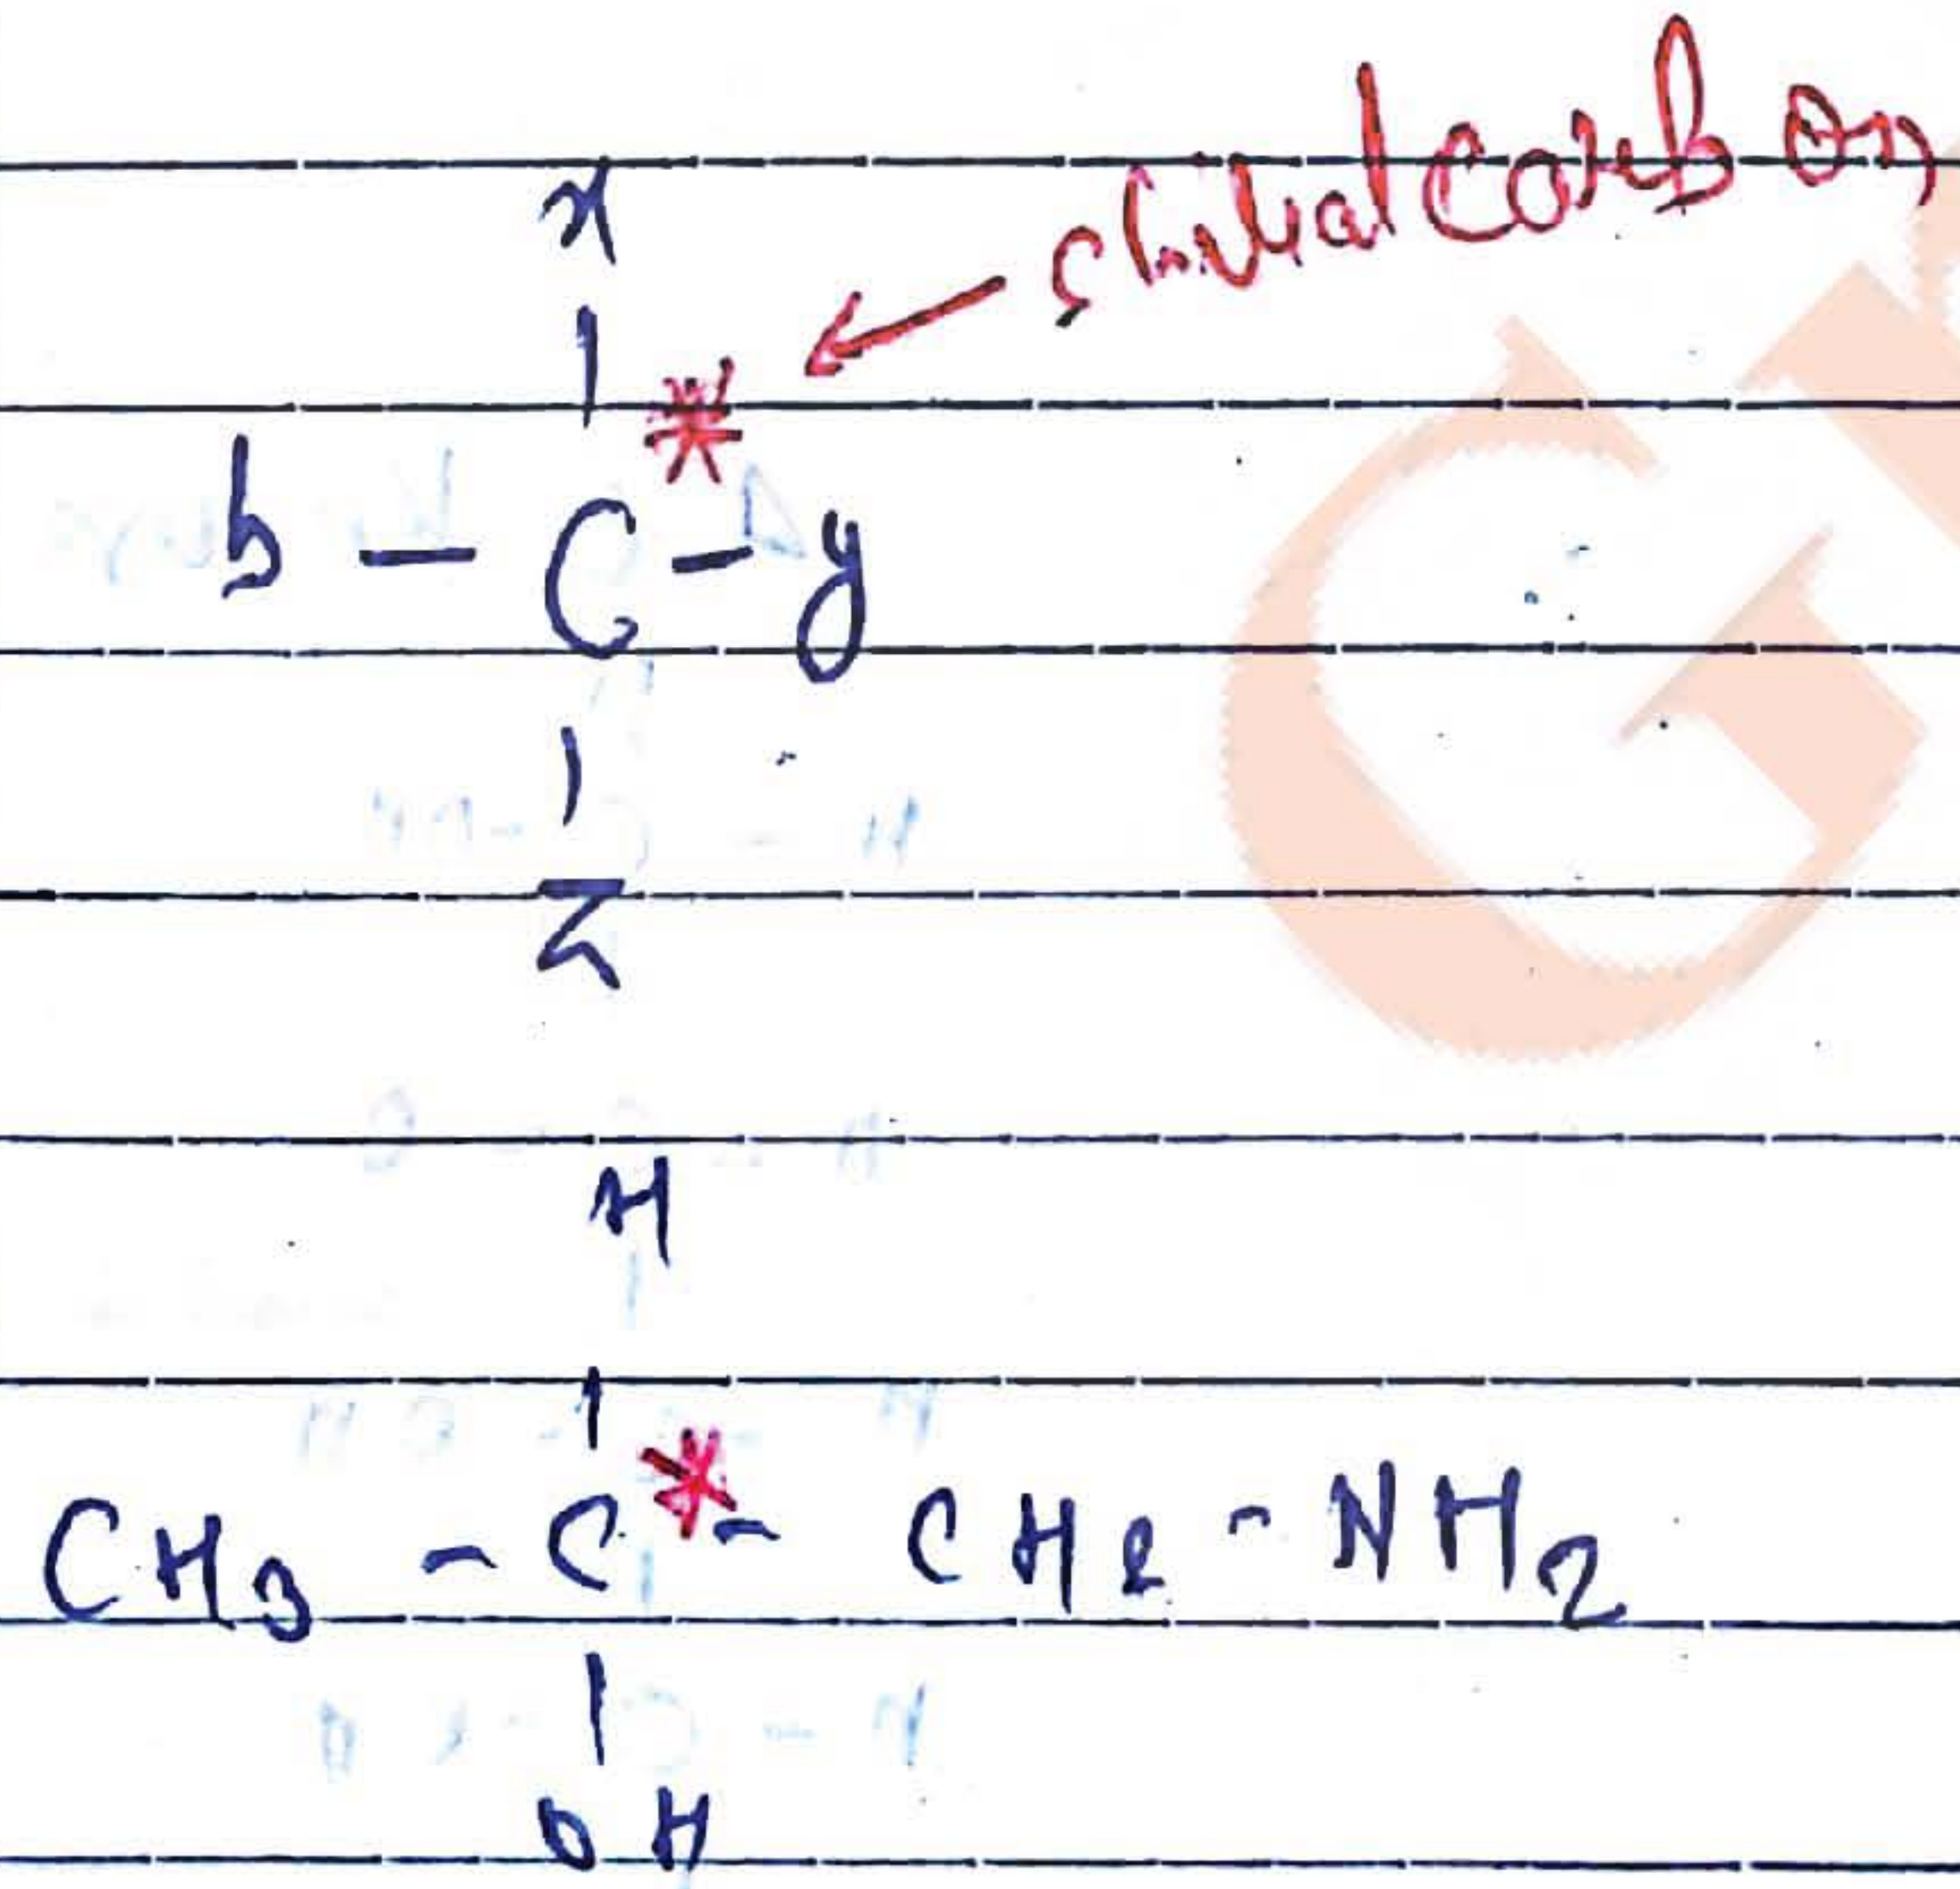 x
chiral carbon
|
*
b - C - y
|
z
H
|
CH3 - C* - CH2 - NH2
|
OH